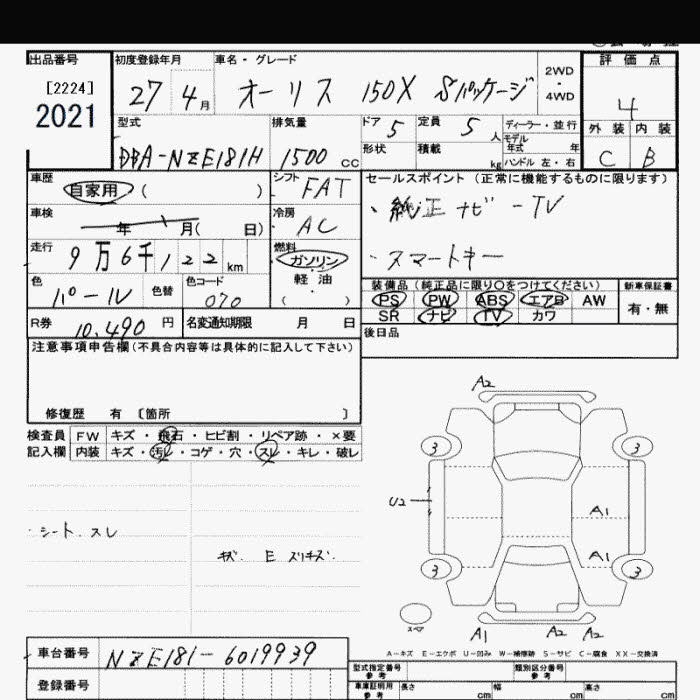 出品番号
[2224]
2021
初度登録年月
27 4月
車名・グレード
オーリス 150X Sパッケージ
2WD
・
4WD
評価点
4
型式
DBA-NZE181H
排気量
1500 CC
ドア 5
定員 5 人
形状
積載 kg
ディーラー・並行
モデル
年式 年
ハンドル 左・右
外装 内装
C B
車歴
自家用 ( )
シフト
FAT
セールスポイント (正常に機能するものに限ります)
、純正ナビ - TV
・スマートキー
車検
年 月( 日)
冷房
AC
走行
9万6千122 km
燃料
ガソリン
・
軽油
・
( )
色
パール
色替
色コード
070
装備品 (純正品に限り○をつけてください)
PS PW ABS エアB AW
SR ナビ TV カワ
新車保証書
有・無
R券
10,490 円
名変通知期限 月 日
後日品
注意事項申告欄(不具合内容等は具体的に記入して下さい)
修復歴 有 〔箇所 〕
検査員
記入欄
FW キズ・飛石・ヒビ割・リペア跡・×要
内装 キズ・汚レ・コゲ・穴・スレ・キレ・破レ
・シート、スレ
キズ、E スリキズ、
A2
3 3
U2
A1
A1
3 3
スペア
A1 A2 A2
A−キズ E−エクボ U−凹み W−補修跡 S−サビ C−腐食 XX−交換済
車台番号
NZE181-6019939
登録番号
型式指定番号
参考
類別区分番号
参考
車庫証明用
参考
長さ cm 幅 cm 高さ cm